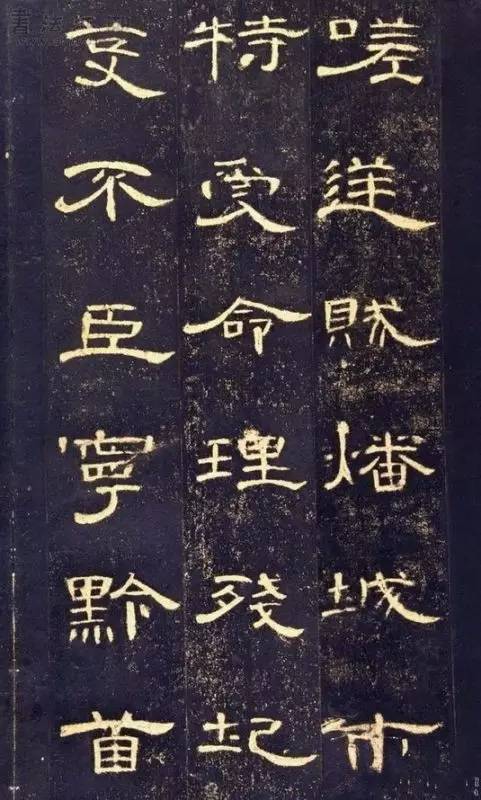 嗟逆賊燔城市
特受命理殘圮
芟不臣寧黔首